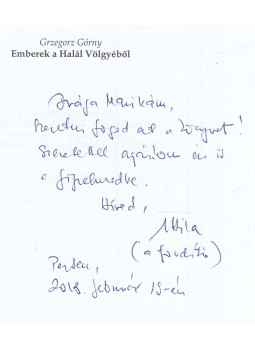 Grzegorz Górny
Emberek a Halál Völgyéből
Drága Marikám,
szeretni fogod ezt a könyvet!
Szeretettel ajánlom én is
a figyelmedbe.
Híved,
Attila
(a fordító)
Pesten,
2018. február 19-én